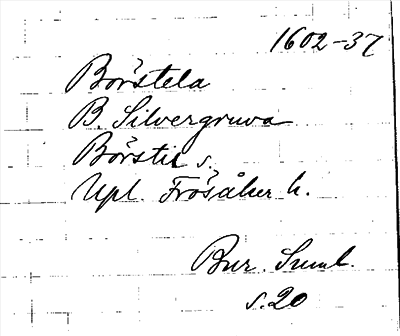 1602-37
Börstela
B. Silvergruva
Börstil s.
Upl. Frösåker h.
Bur. Suml.
s. 20